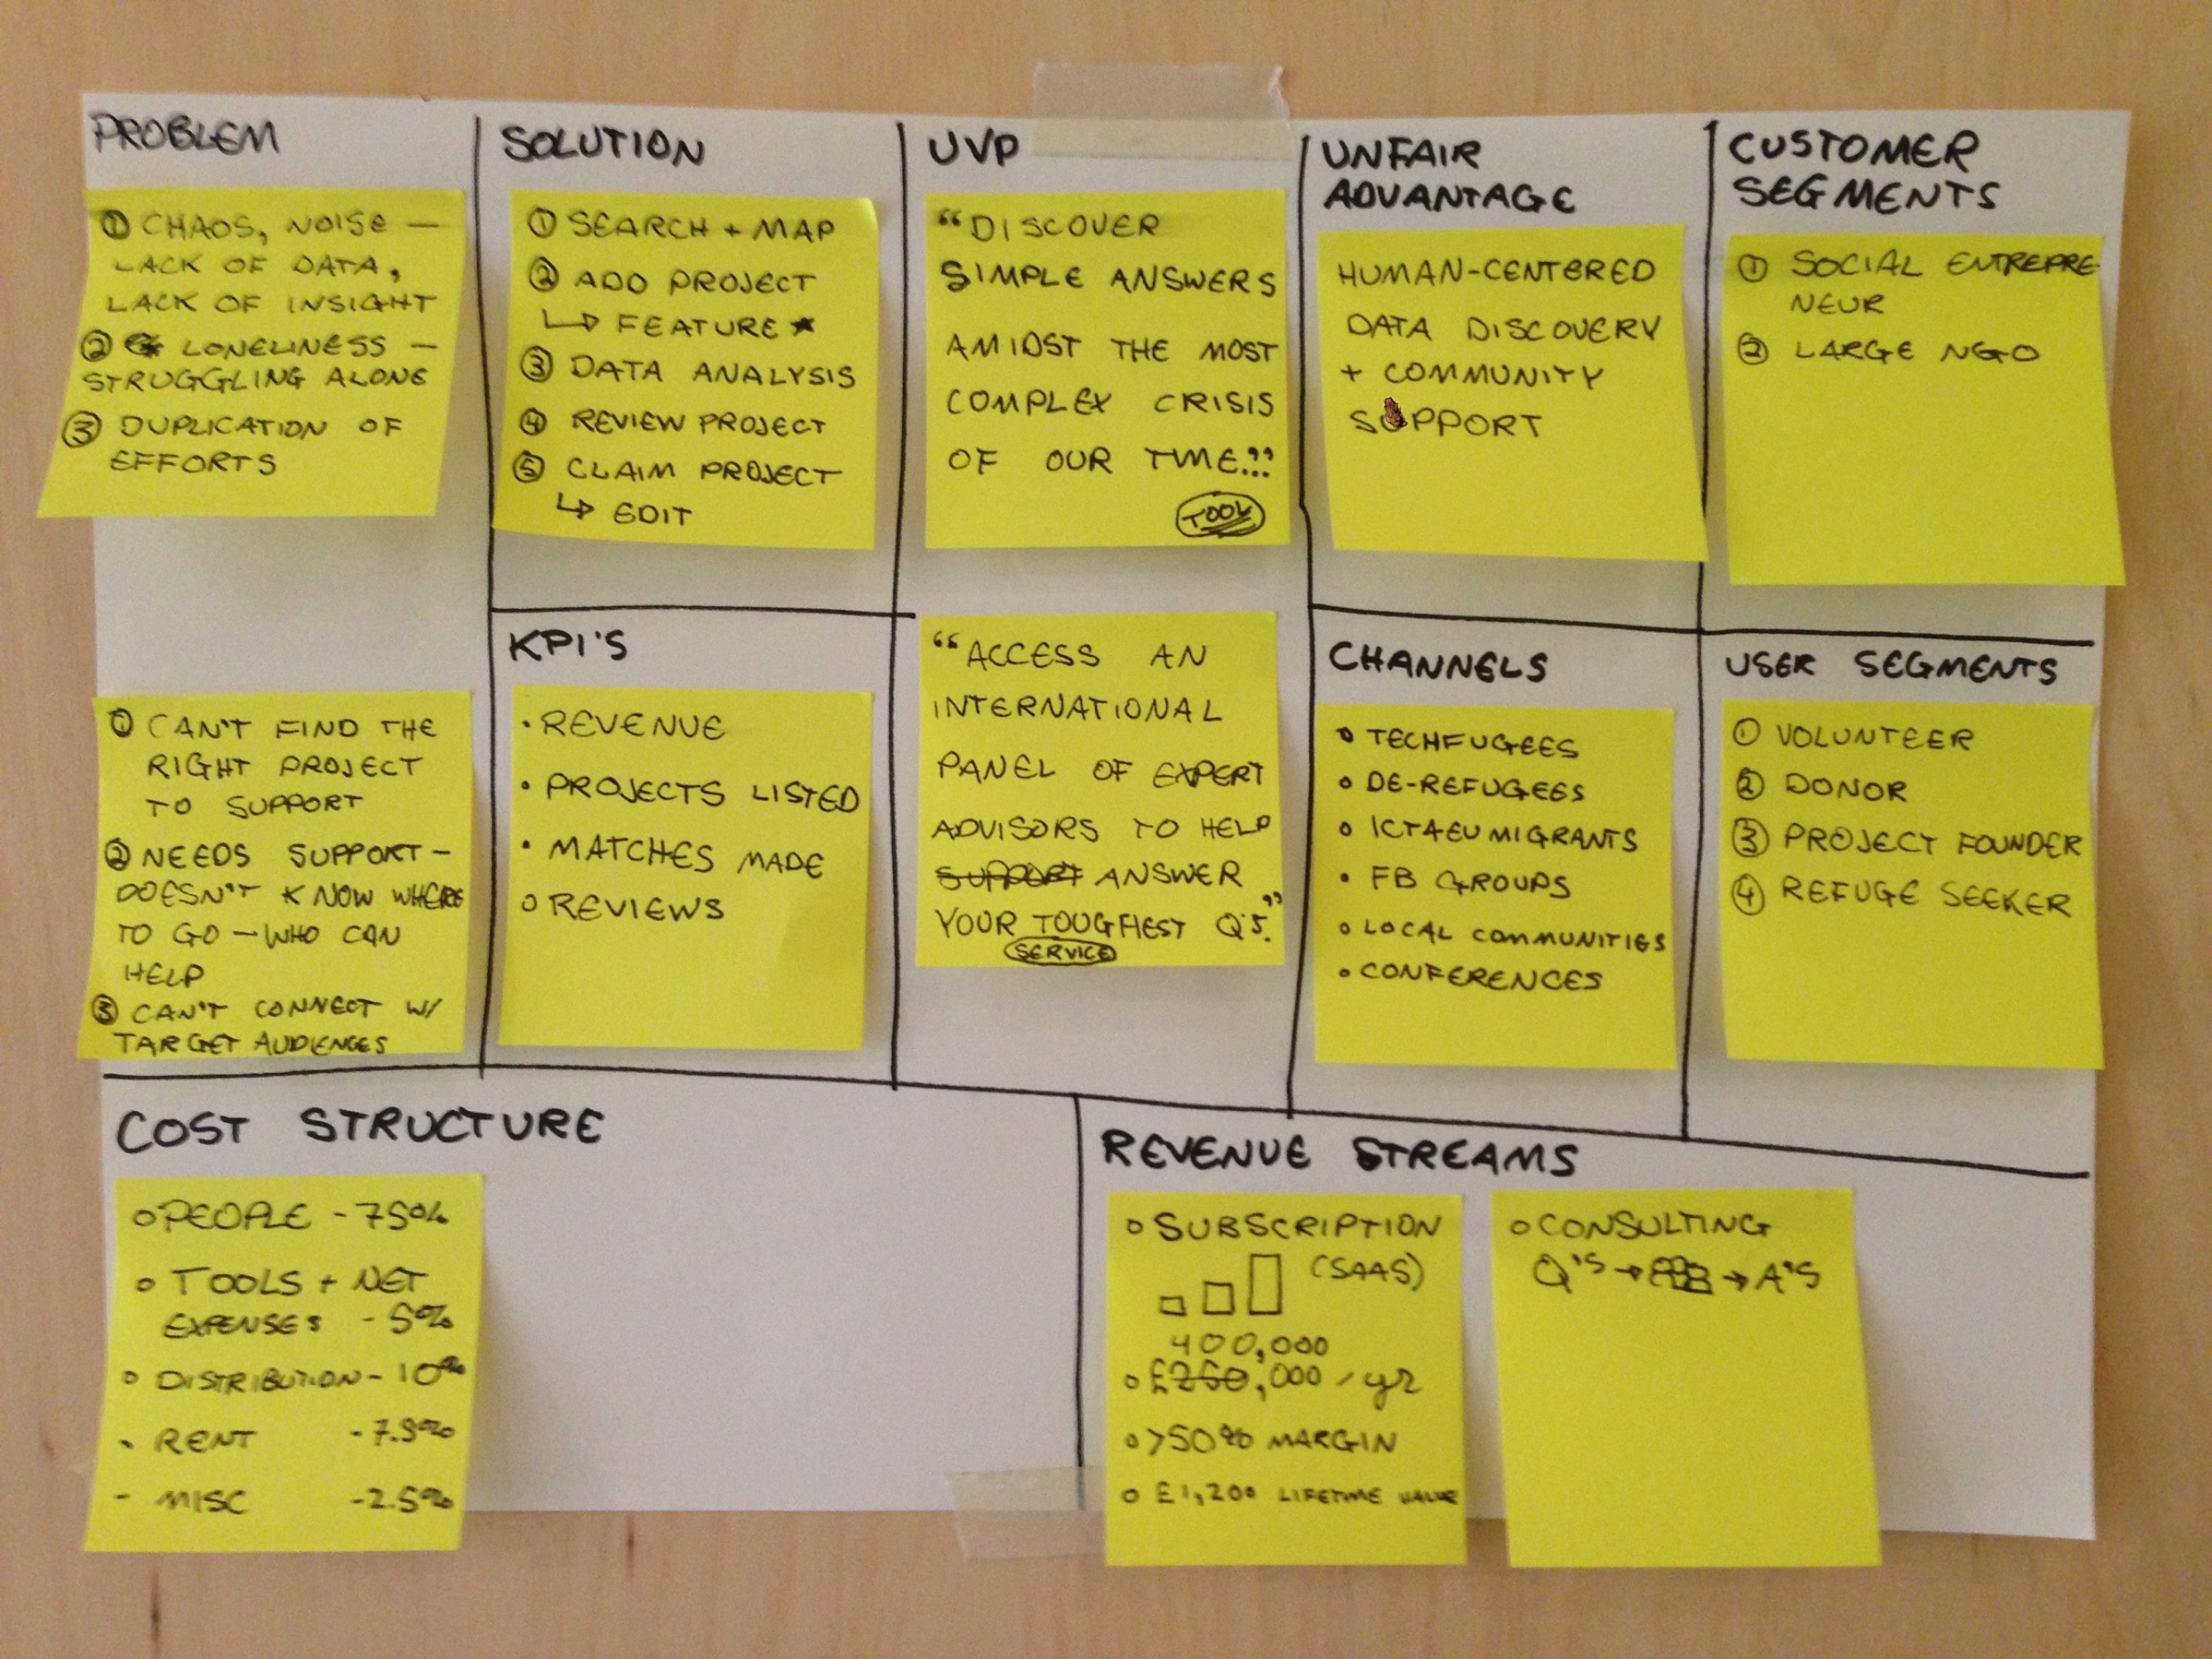 PROBLEM
① CHAOS, NOISE —
LACK OF DATA,
LACK OF INSIGHT
② LONELINESS —
STRUGGLING ALONE
③ DUPLICATION OF
EFFORTS
① CAN'T FIND THE
RIGHT PROJECT
TO SUPPORT
② NEEDS SUPPORT -
DOESN'T KNOW WHERE
TO GO - WHO CAN
HELP
③ CAN'T CONNECT W/
TARGET AUDIENCES
SOLUTION
① SEARCH + MAP
② ADD PROJECT
↳ FEATURE ★
③ DATA ANALYSIS
④ REVIEW PROJECT
⑤ CLAIM PROJECT
↳ EDIT
KPI'S
• REVENUE
• PROJECTS LISTED
• MATCHES MADE
• REVIEWS
UVP
"DISCOVER
SIMPLE ANSWERS
AMIDST THE MOST
COMPLEX CRISIS
OF OUR TIME..."
TOOL
"ACCESS AN
INTERNATIONAL
PANEL OF EXPERT
ADVISORS TO HELP
SUPPORT ANSWER
YOUR TOUGHEST Q'S."
SERVICE
UNFAIR
ADVANTAGE
HUMAN-CENTERED
DATA DISCOVERY
+ COMMUNITY
SUPPORT
CHANNELS
• TECHFUGEES
• DE-REFUGEES
• ICT4EUMIGRANTS
• FB GROUPS
• LOCAL COMMUNITIES
• CONFERENCES
CUSTOMER
SEGMENTS
① SOCIAL ENTREPRE-
NEUR
② LARGE NGO
USER SEGMENTS
① VOLUNTEER
② DONOR
③ PROJECT FOUNDER
④ REFUGE SEEKER
COST STRUCTURE
• PEOPLE - 75%
• TOOLS + NET
EXPENSES - 5%
• DISTRIBUTION - 10%
• RENT - 7.5%
- MISC - 2.5%
REVENUE STREAMS
• SUBSCRIPTION
(SAAS)
400,000
• £250,000 / yr
• >50% MARGIN
• £1,200 LIFETIME VALUE
• CONSULTING
Q'S → → A'S